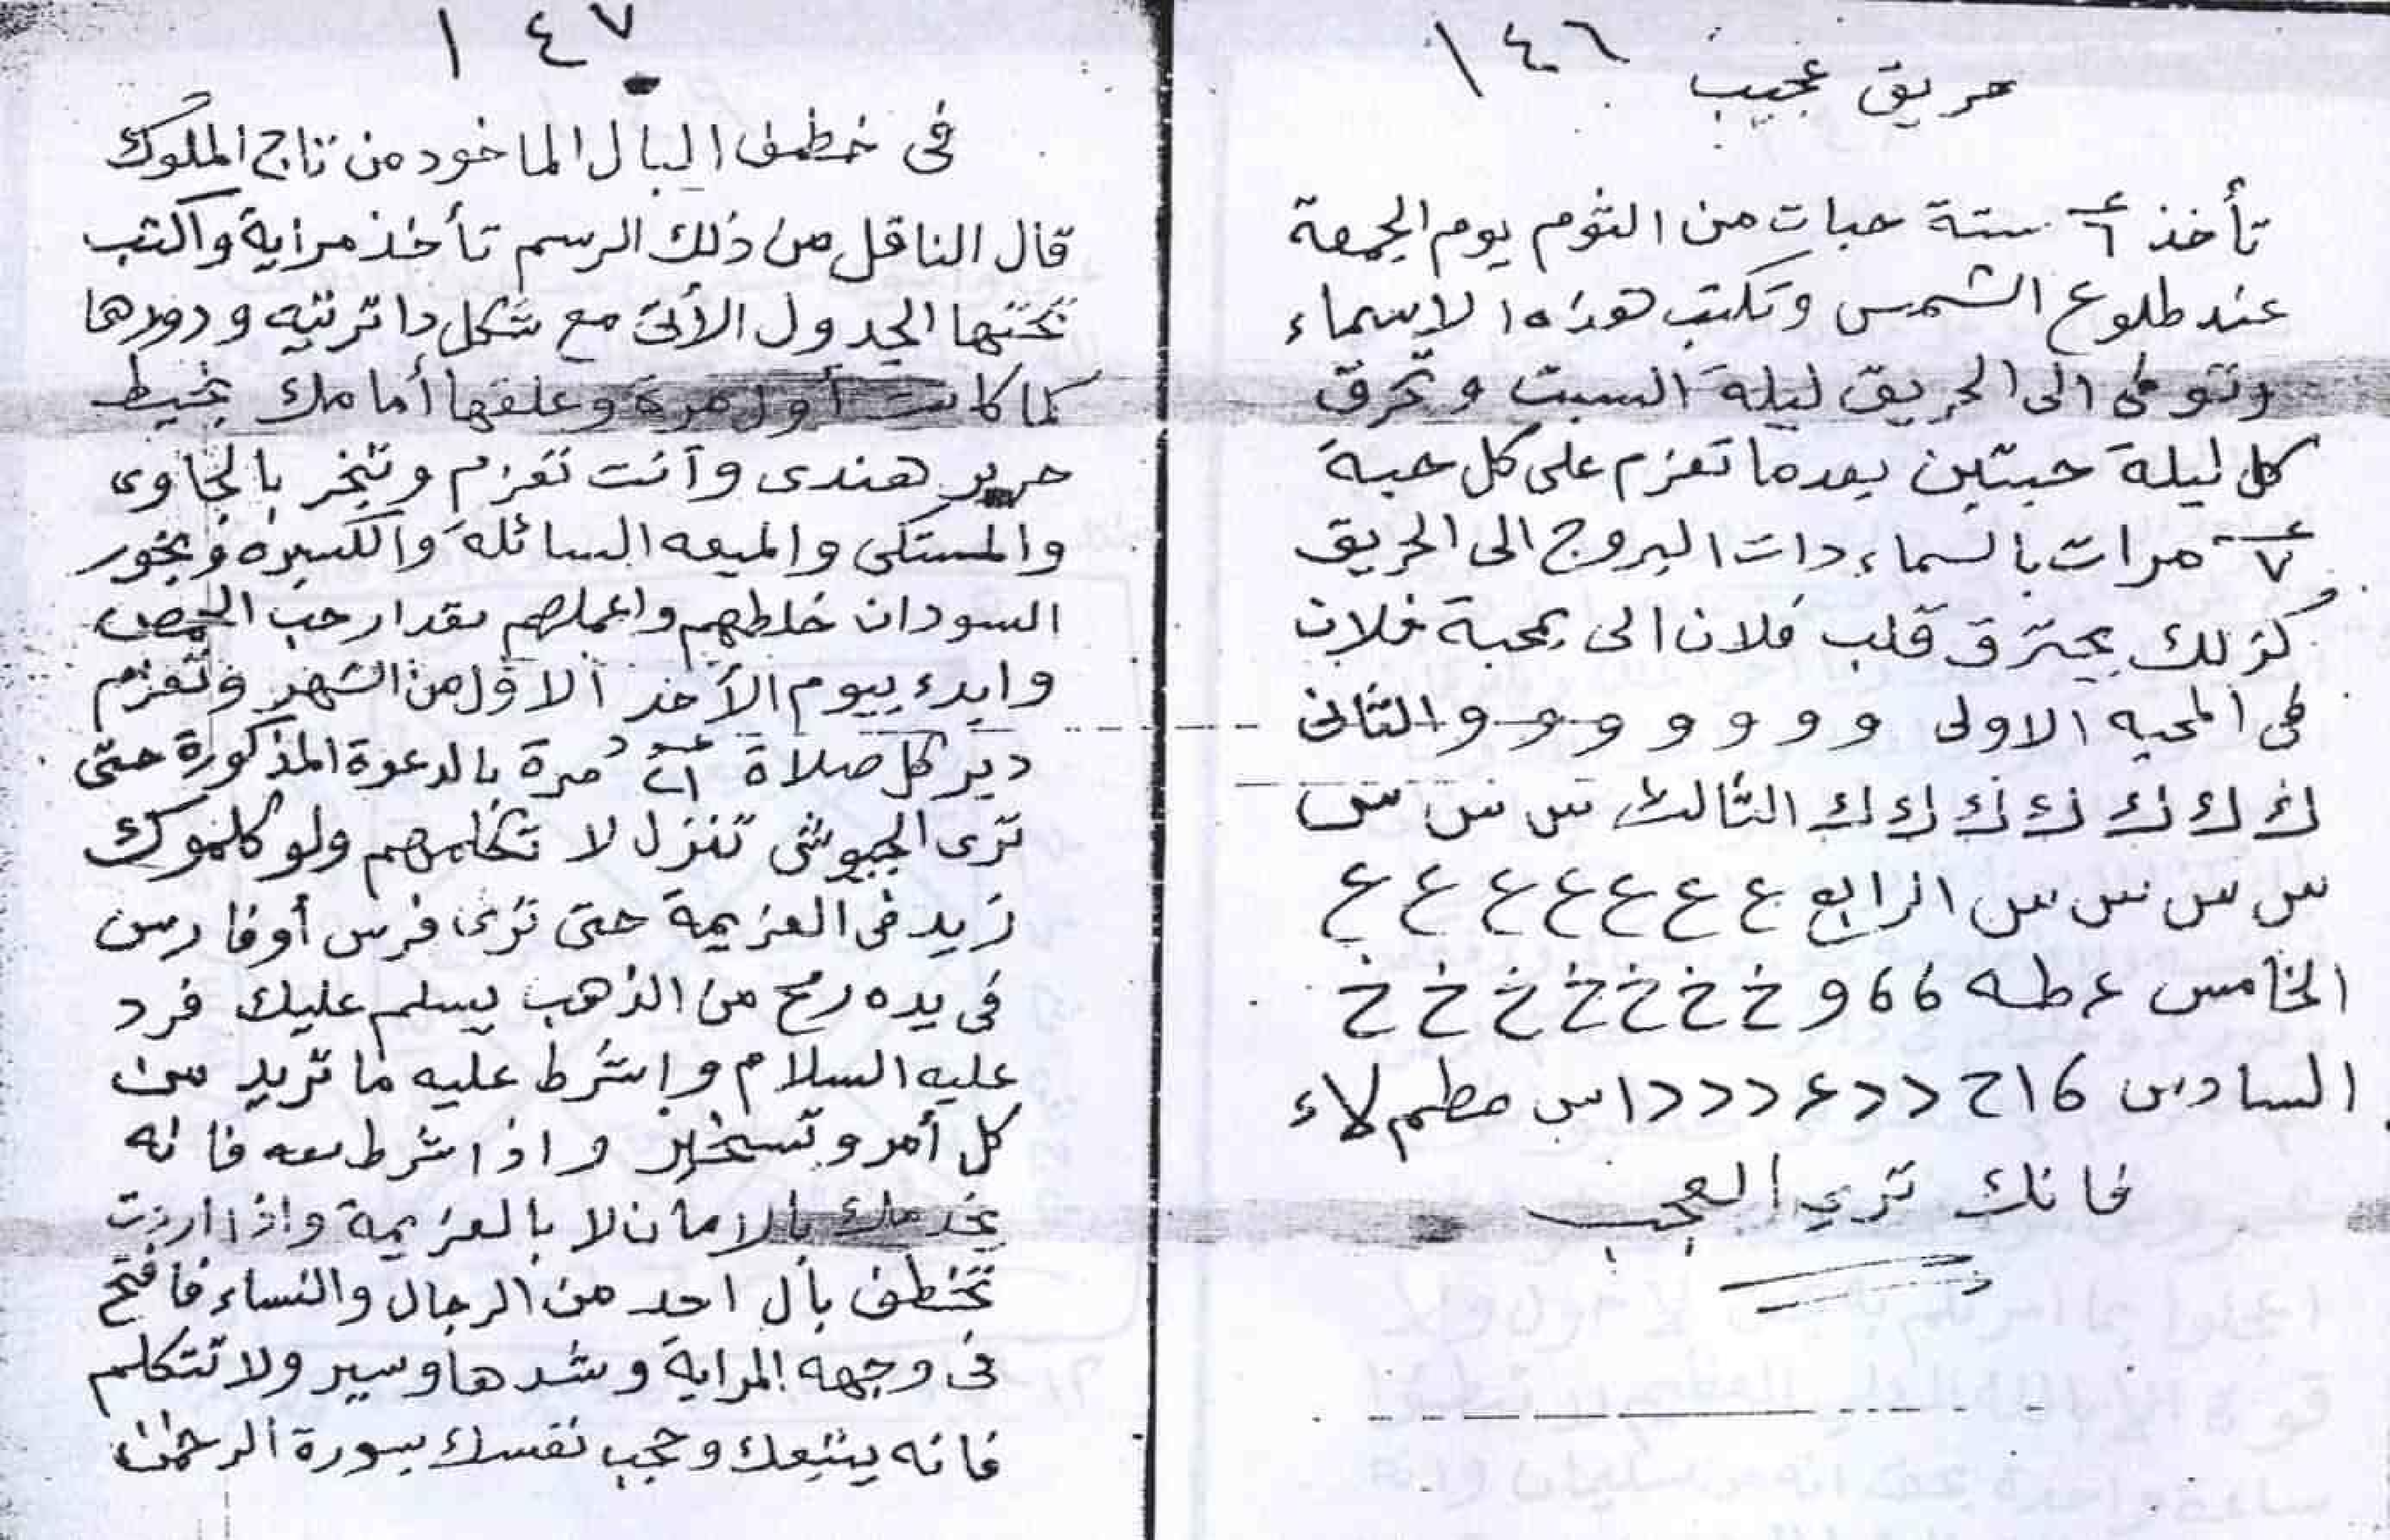 ١٤٦
حريق عجيب
تأخذ ٦ ستة حبات من الثوم يوم الجمعة
عند طلوع الشمس وتكتب هذه الاسماء
وتوطى الى الحريق ليلة السبت وتحرق
كل ليلة حبتين بعدما تعزم على كل حبة
٧ مرات بالسماء دات البروج الى الحريق
كذلك يحترق قلب فلان الى بمحبة فلان
فى المحبه الاولى و و و و و و و والثانى
ك ك ك ك ك ك ك الثالث س س س
س س س س الرابع ع ع ع ع ع ع ع
الخامس ع طه ٦ ٦ و خ خ خ خ خ خ خ
السادس ٦ ا ح د د ع د د د ا س مطم لاء
فانك ترى العجب
١٤٧
فى خطف البال الماخود من تاج الملوك
قال الناقل من ذلك الرسم تأخذ مراية واكتب
تحتها الجدول الأتى مع شكل داترتيه ودورها
كما كانت أول مرة وعلقها أمامك بخيط
حرير هندى وآنت تعزم وتبخر بالجاوى
والمستكى والميعه السائلة والكسبره وبخور
السودان خلطهم واعملهم مقدار حب الحمص
وابدء بيوم الأحد الاول من الشهر وتعزم
دبر كل صلاة ٢١ مرة بالدعوة المذكورة حتى
ترى الجيوش تنزل لا تكلمهم ولو كلموك
زيد فى العزيمة حتى ترى فرس أوفارس
فى يده رمح من الذهب يسلم عليك فرد
عليه السلام واشرط عليه ما تريد من
كل أمر وتسخير واذا شرط معه فانه
يخدمك بالامان لا بالعزيمة واذا اردت
تخطف بأل احد من الرجال والنساء فافتح
فى وجهه المراية وشدها وسير ولا تتكلم
فانه يتبعك وحجب نفسك بسورة الرحمن